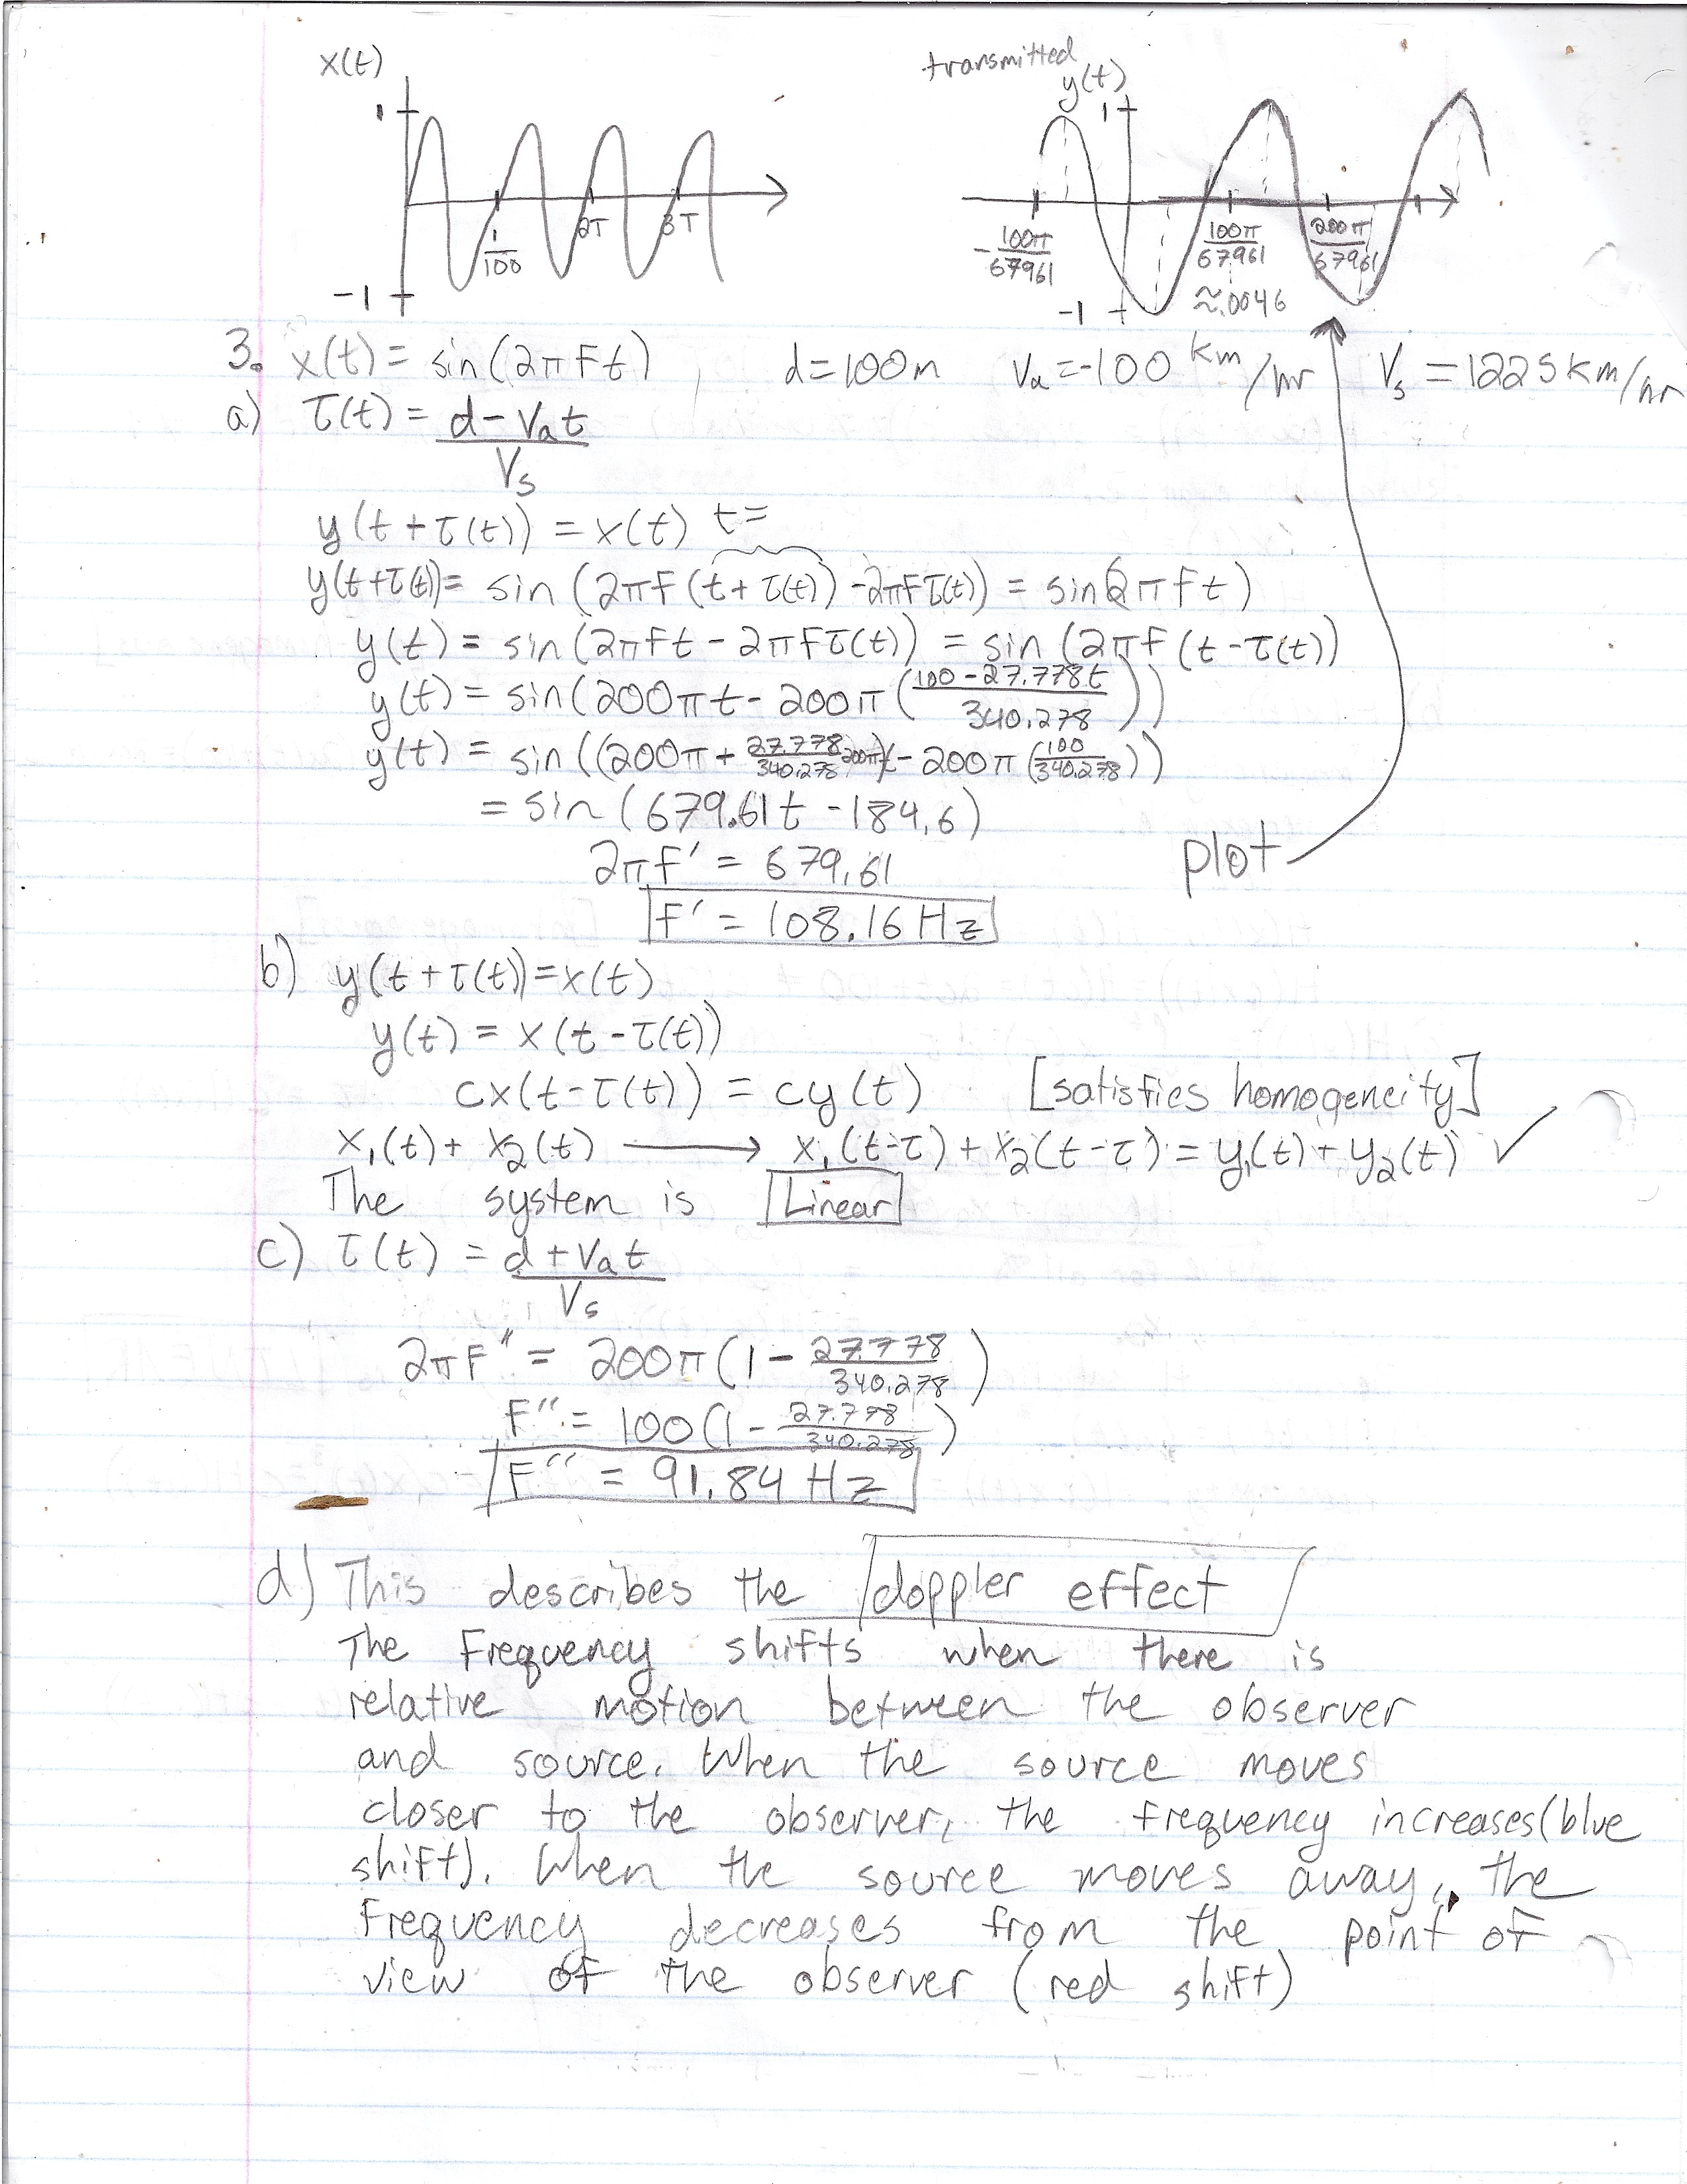 x(t)
1
-1
1/100 2T 3T
transmitted
y(t)
1
-1
-100π/67961 100π/67961 200π/67961
≈.0046
3. x(t) = sin(2πFt), d=100m Va=-100 km/hr Vs=1225km/hr
a) τ(t) = (d-Vat)/Vs
y(t+τ(t)) = x(t) t=
y(t+τ(t))= sin(2πF(t+τ(t))-2πFτ(t)) = sin(2πFt)
y(t) = sin(2πFt-2πFτ(t)) = sin(2πF(t-τ(t))
y(t) = sin(200πt-200π((100-27.778t)/340.278))
y(t) = sin((200π+27.778/340.278 200π)t-200π(100/340.278))
= sin(679.61t-184.6)
2πF' = 679.61
plot
F' = 108.16Hz
b) y(t+τ(t))=x(t)
y(t) = x(t-τ(t))
cx(t-τ(t)) = cy(t) [satisfies homogeneity]
x₁(t)+x₂(t) → x₁(t-τ)+x₂(t-τ)=y₁(t)+y₂(t) ✓
The system is Linear
c) τ(t) = (d+Vat)/Vs
2πF" = 200π(1-27.778/340.278)
F" = 100(1-27.778/340.278)
F" = 91.84Hz
d) This describes the doppler effect
The Frequency shifts when there is
relative motion between the observer
and source. When the source moves
closer to the observer, the frequency increases(blue
shift). When the source moves away, the
Frequency decreases from the point of
view of the observer (red shift)